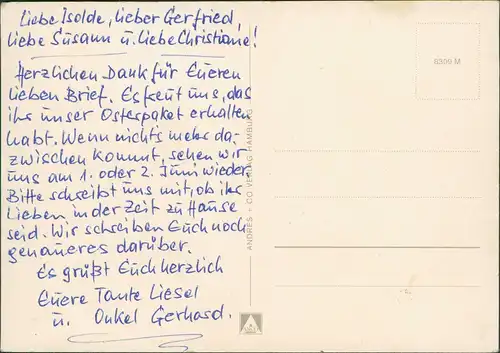 Liebe Isolde, lieber Gerfried,
liebe Susann u. liebe Christiane!
Herzlichen Dank für Eueren
lieben Brief. Es freut uns, das
ihr unser Osterpaket erhalten
habt. Wenn nichts mehr da-
zwischen kommt, sehen wir
uns am 1. oder 2. Juni wieder.
Bitte schreibt uns mit, ob ihr
Lieben, in der Zeit zu Hause
seid. Wir schreiben Euch noch
genaueres darüber.
Es grüßt Euch herzlich
Euere Tante Liesel
u. Onkel Gerhard.
8309 M
ANDRES + CO VERLAG HAMBURG